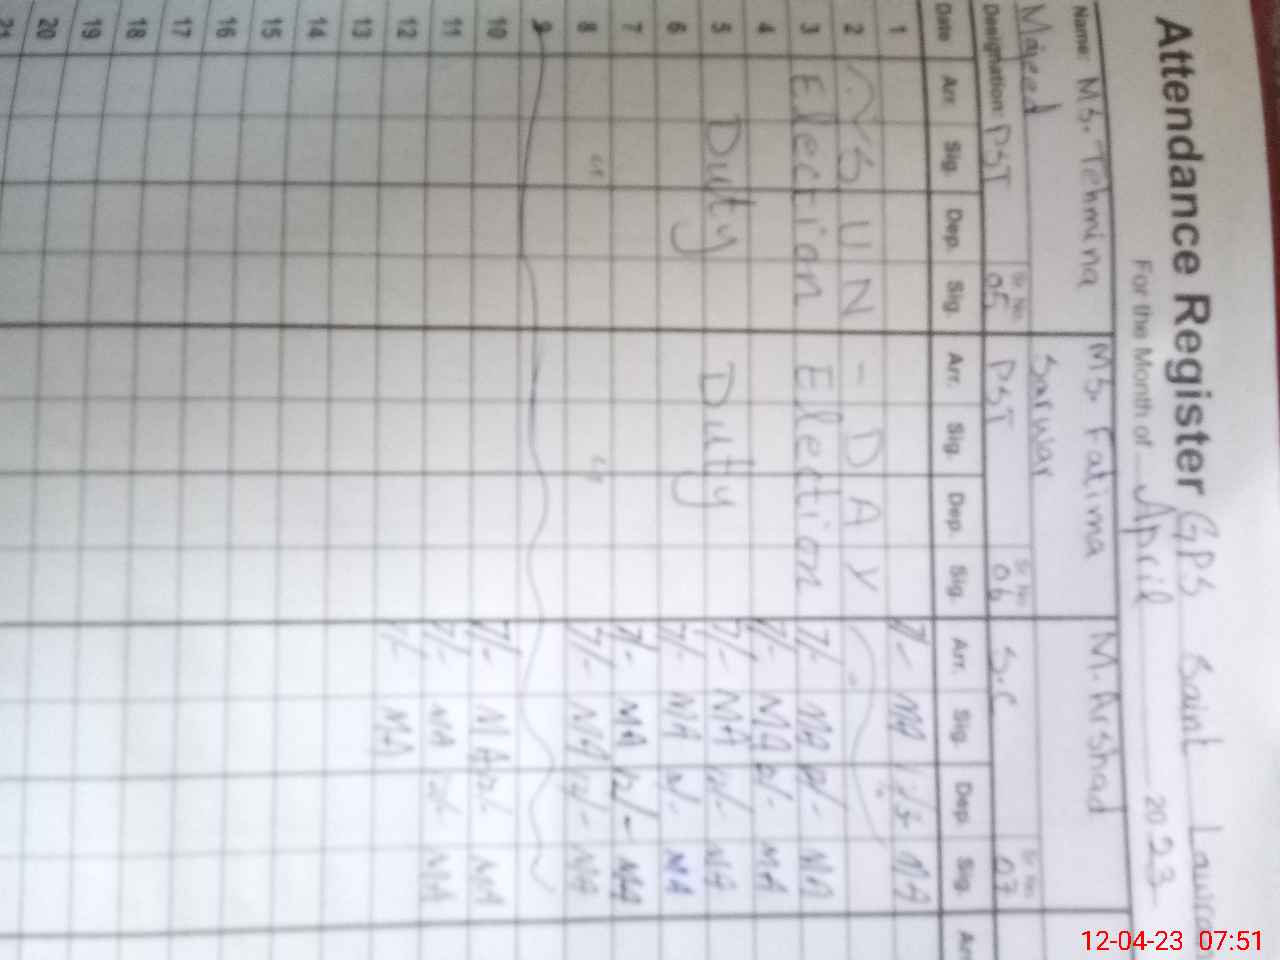 Attendance Register GPS Saint
For the Month of April 2023
Name: Ms. Tehmina Majeed
Ms. Fatima Sarwar
M. Arshad
Designation: PST Sr No. 05
PST Sr No. 06
S.C Sr No. 07
Date Arr. Sig. Dep. Sig. Arr. Sig. Dep. Sig. Arr. Sig. Dep. Sig.
1 7/- MA MA
2 SUN - DAY
3 Election Election 7/- MA MA
4 7/- MA MA
5 Duty Duty 7/- MA 12/- MA
6 7/- MA MA
7 7/- MA 12/- MA
8 " " 7/- MA 12/- MA
9
10 7/- MA 12/- MA
11 7/- MA 12/- MA
12 7/- MA
13
14
15
16
17
18
19
20
21
12-04-23 07:51